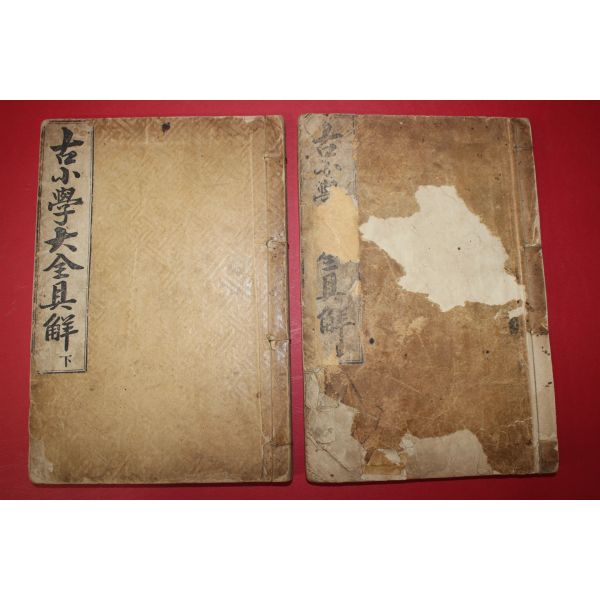 古小學大全具觧下
古小學具觧